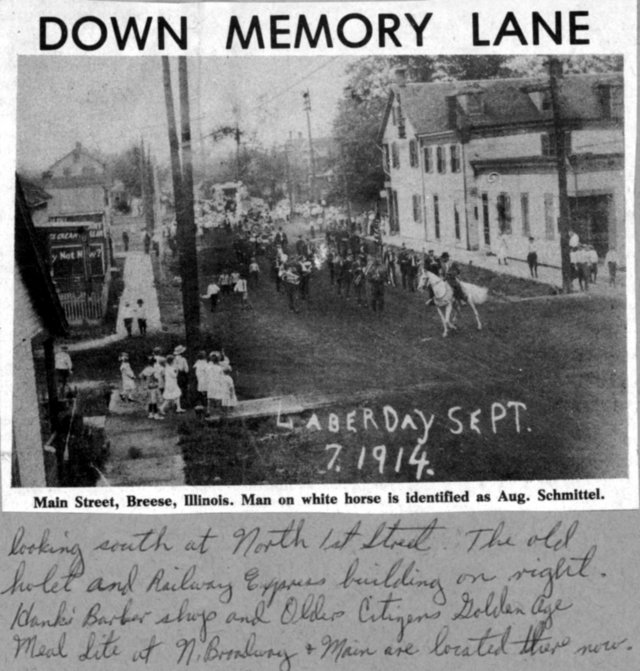 DOWN MEMORY LANE
ICE CREAM
y Not Now?
LABERDAY SEPT.
7. 1914.
Main Street, Breese, Illinois. Man on white horse is identified as Aug. Schmittel.
looking south at North 1st Street. The old
holet and Railway Express building on right.
Hank's Barber shop and Older Citizens Golden Age
Meal Site at N. Broadway + Main are located there now.